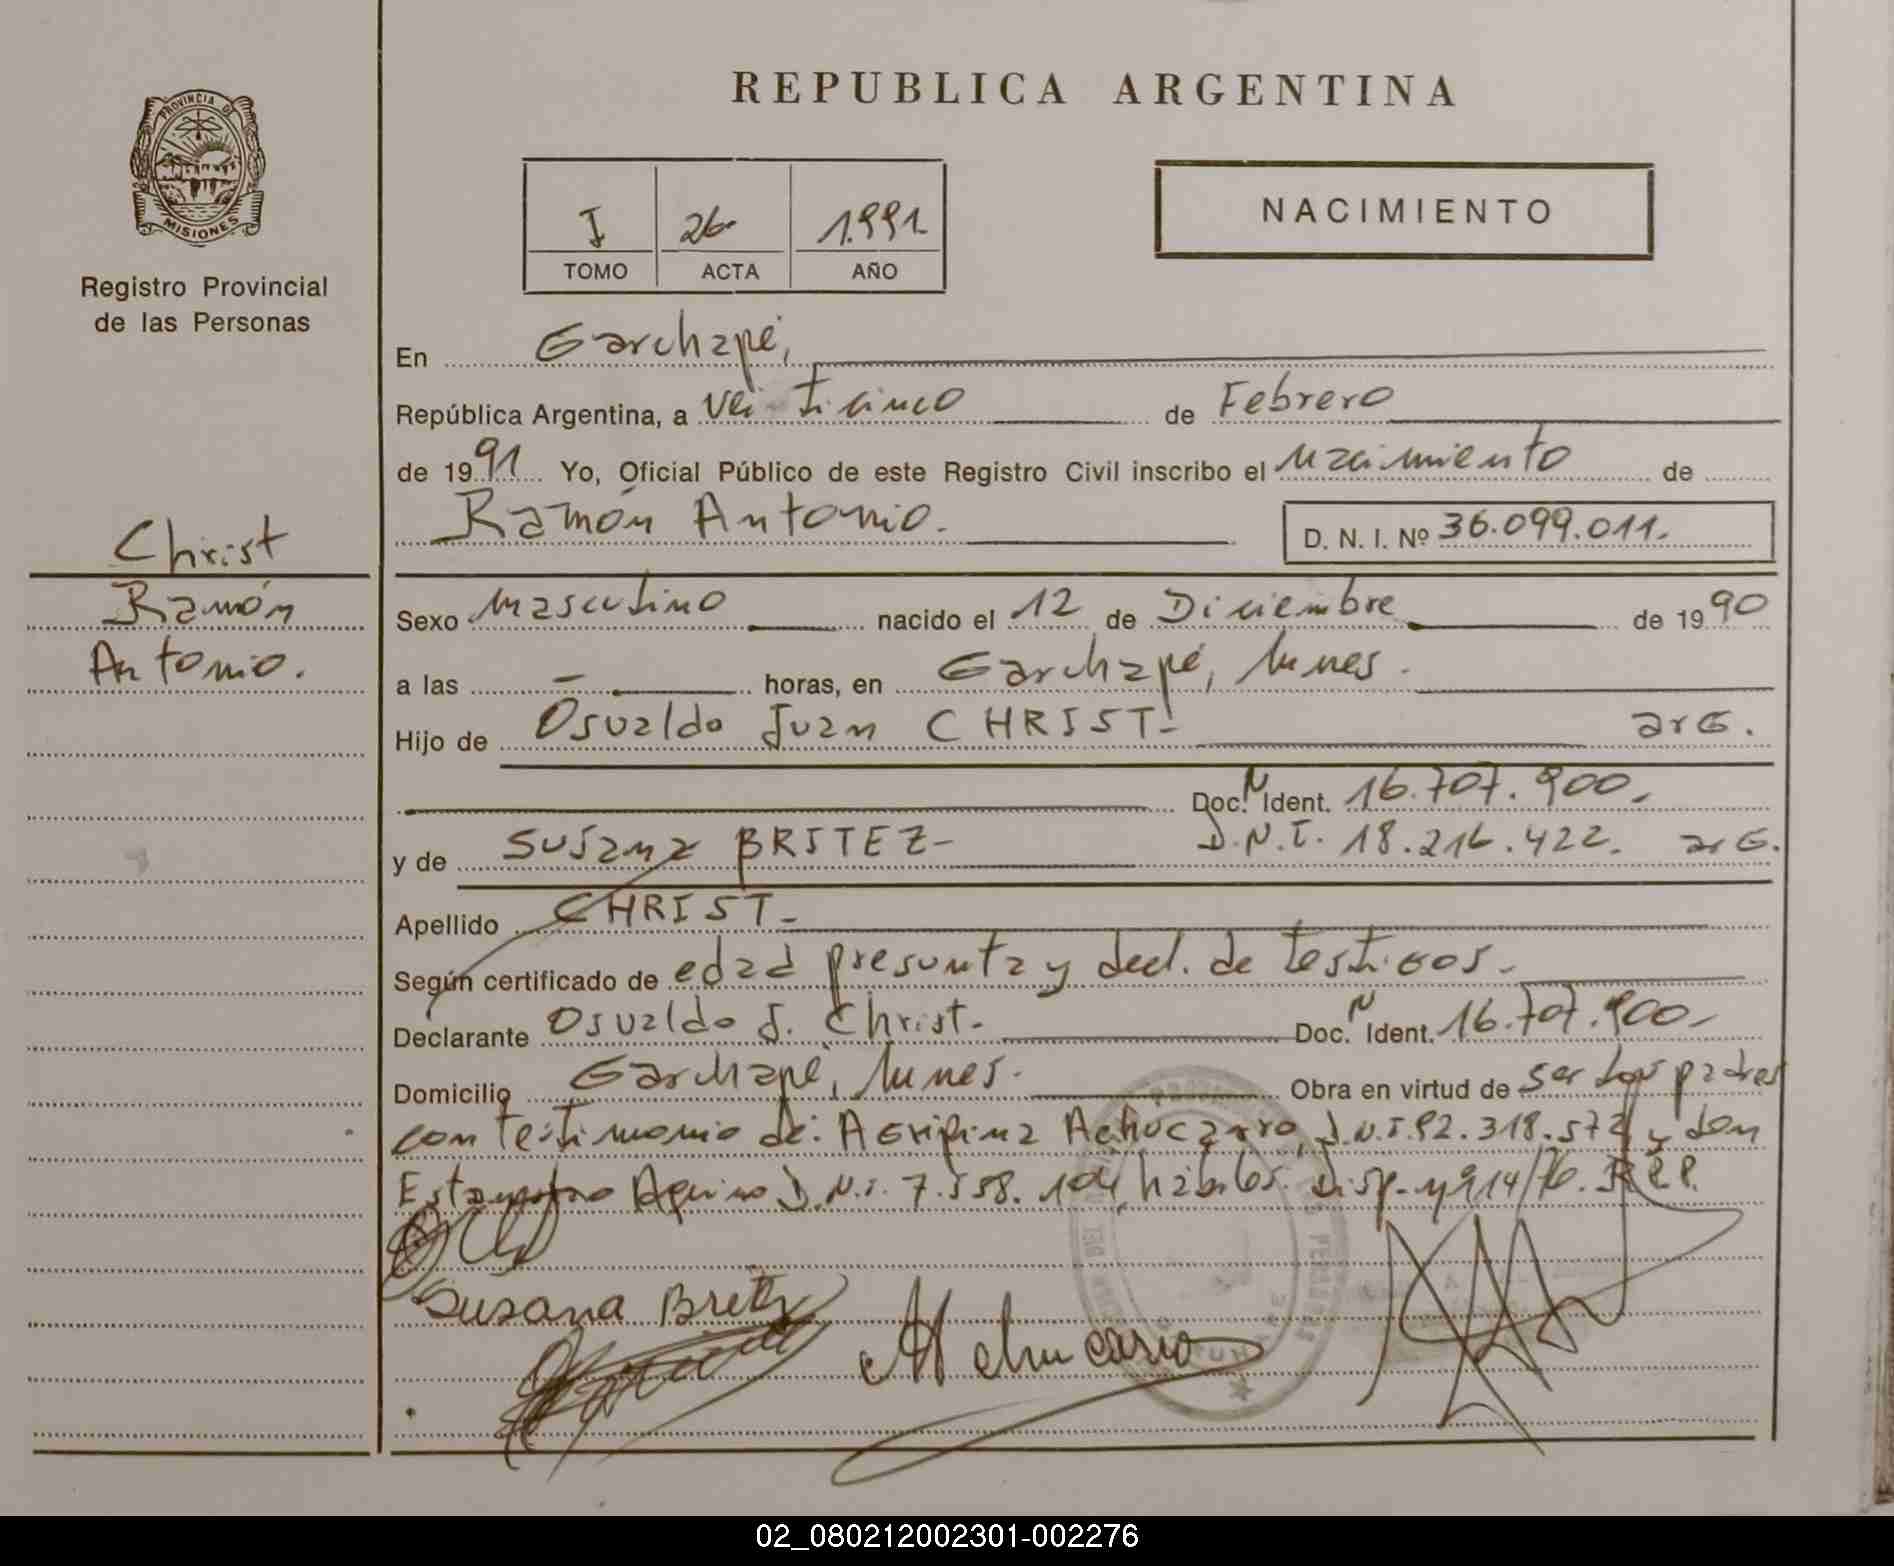 PROVINCIA DE
MISIONES
Registro Provincial
de las Personas
Christ
Ramón
Antonio.
REPUBLICA ARGENTINA
I 26 1.991
TOMO ACTA AÑO
NACIMIENTO
En Garchapé,
República Argentina, a Veinticinco de Febrero
de 1991 Yo, Oficial Público de este Registro Civil inscribo el nacimiento de
Ramón Antonio. D. N. I. Nº 36.099.011.
Sexo masculino nacido el 12 de Diciembre de 1990
a las - horas, en Garchapé, lunes.
Hijo de Osvaldo Juan CHRIST- arG.
Doc. N Ident. 16.707.900.
y de Susana BRITEZ- D.N.I. 18.216.422. arG.
Apellido CHRIST-
Según certificado de edad presunta y decl. de testigos.
Declarante Osvaldo J. Christ. Doc. N Ident. 16.707.900-
Domicilio Garchapé, lunes. Obra en virtud de ser los padres
con testimonio de: Agripina Achucarro, D.N.I. 92.318.572 y don
Aquino D.N.I. 7.558.104, hábiles. Disp. nº 914/76. R.P.
Susana Britez
Achucarro
02_080212002301-002276